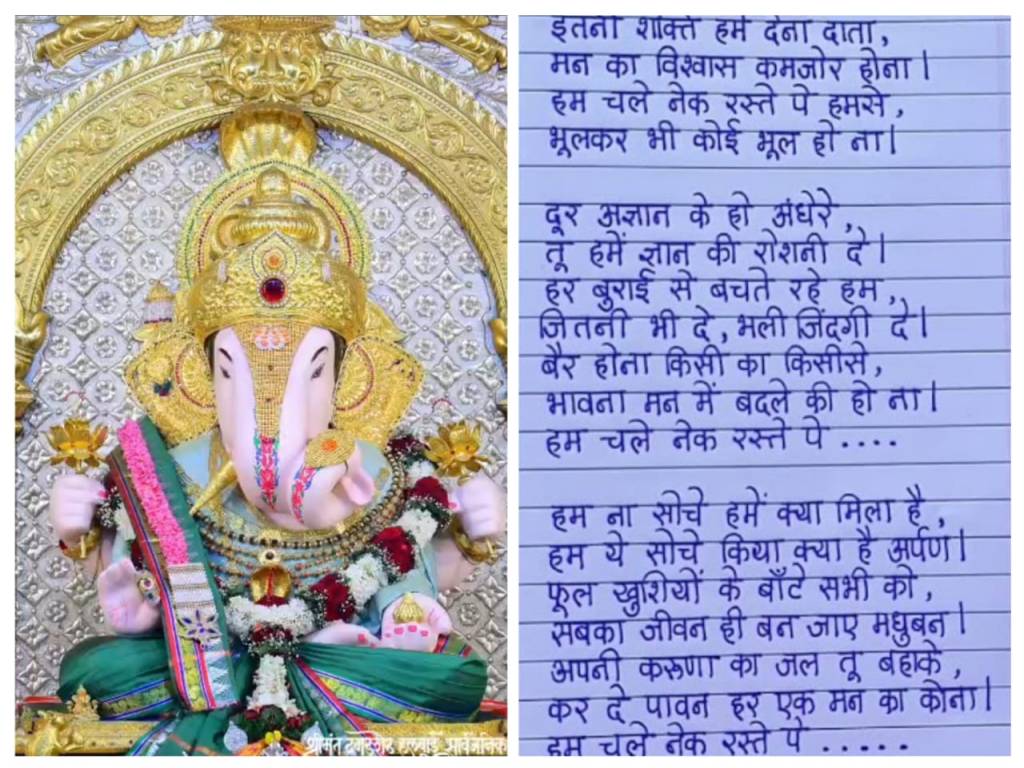 इतनी शक्ति हमें देना दाता,
मन का विश्वास कमजोर होना।
हम चले नेक रस्ते पे हमसे,
भूलकर भी कोई भूल हो ना।
दूर अज्ञान के हो अंधेरे,
तू हमें ज्ञान की रोशनी दे।
हर बुराई से बचते रहे हम,
जितनी भी दे, भली जिंदगी दे।
बैर होना किसी का किसीसे,
भावना मन में बदले की हो ना।
हम चले नेक रस्ते पे ....
हम ना सोचे हमें क्या मिला है,
हम ये सोचे किया क्या है अर्पण।
फूल खुशियों के बाँटे सभी को,
सबका जीवन ही बन जाए मधुबन।
अपनी करुणा का जल तू बहाके,
कर दे पावन हर एक मन का कोना।
हम चले नेक रस्ते पे .....
श्रीमंत दगडूशेठ हलवाई सार्वजनिक